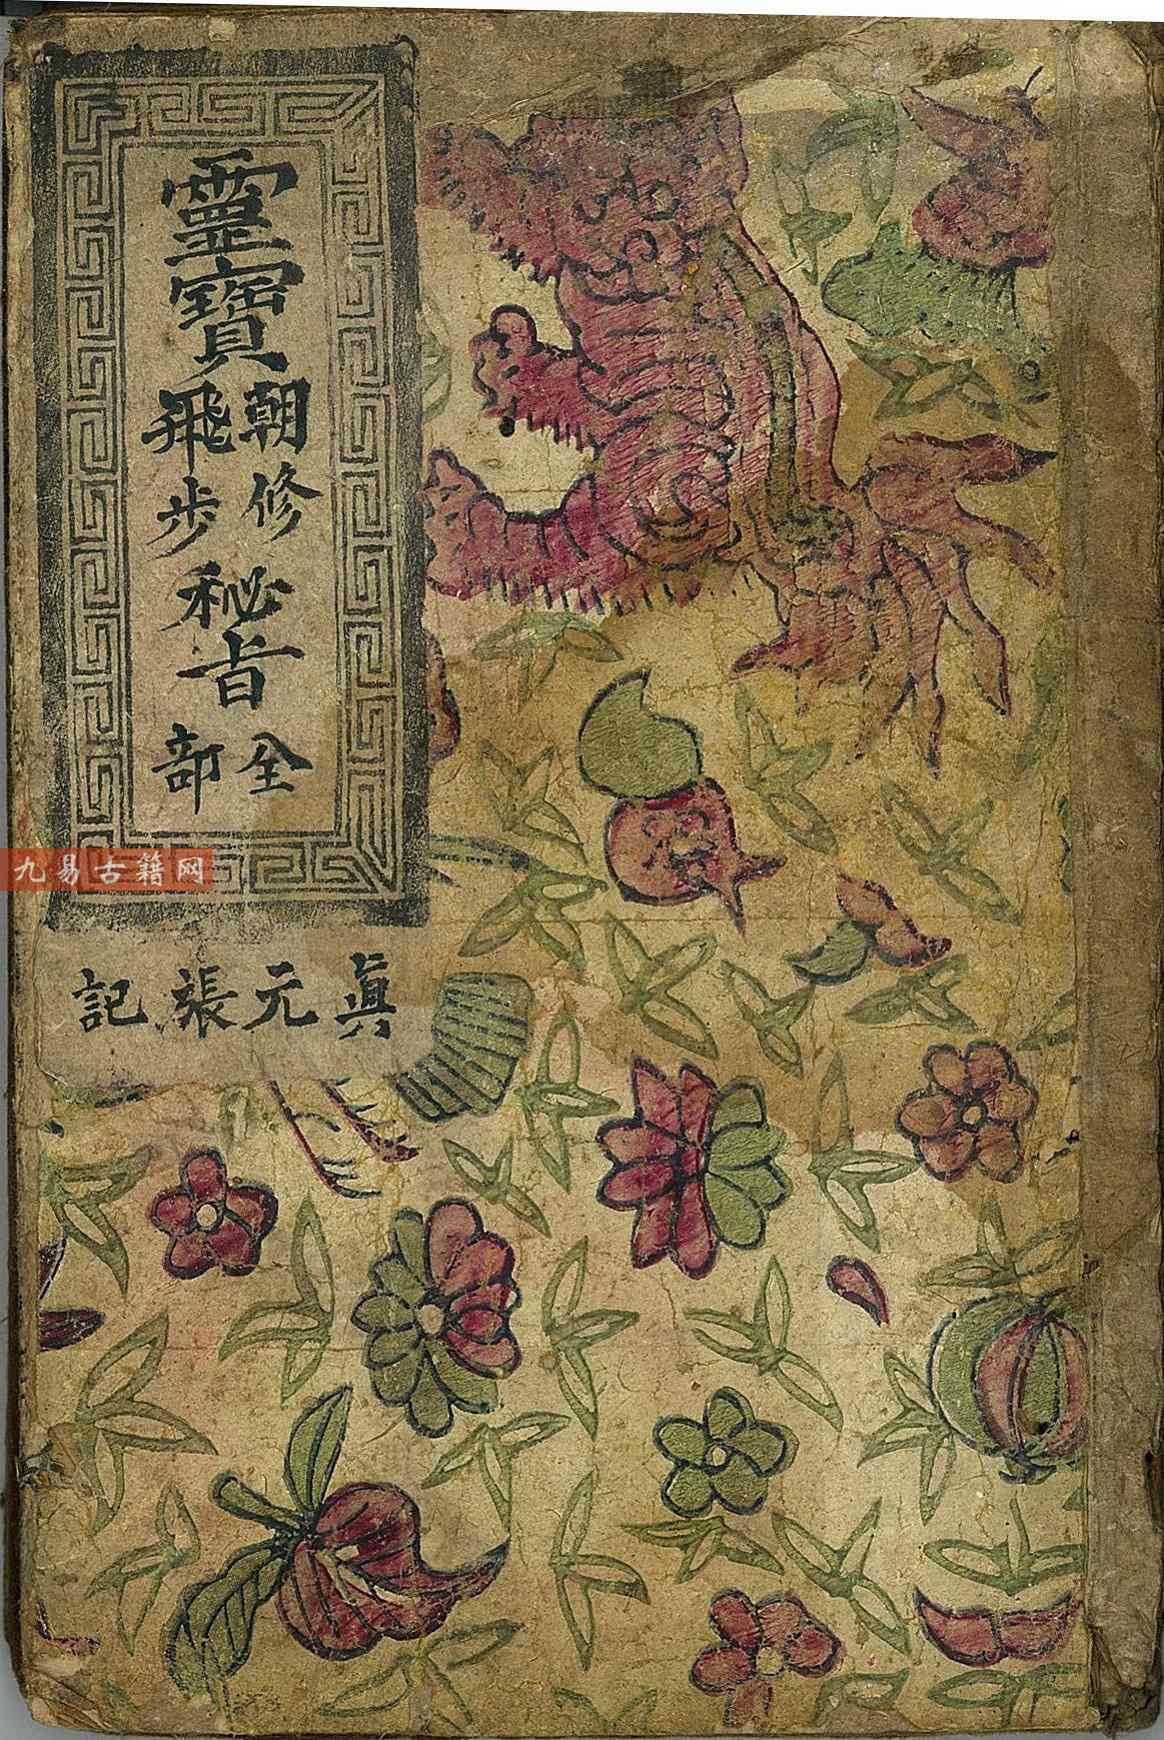 靈寶
朝修
飛步
秘旨
全部
眞元張記
九易古籍网